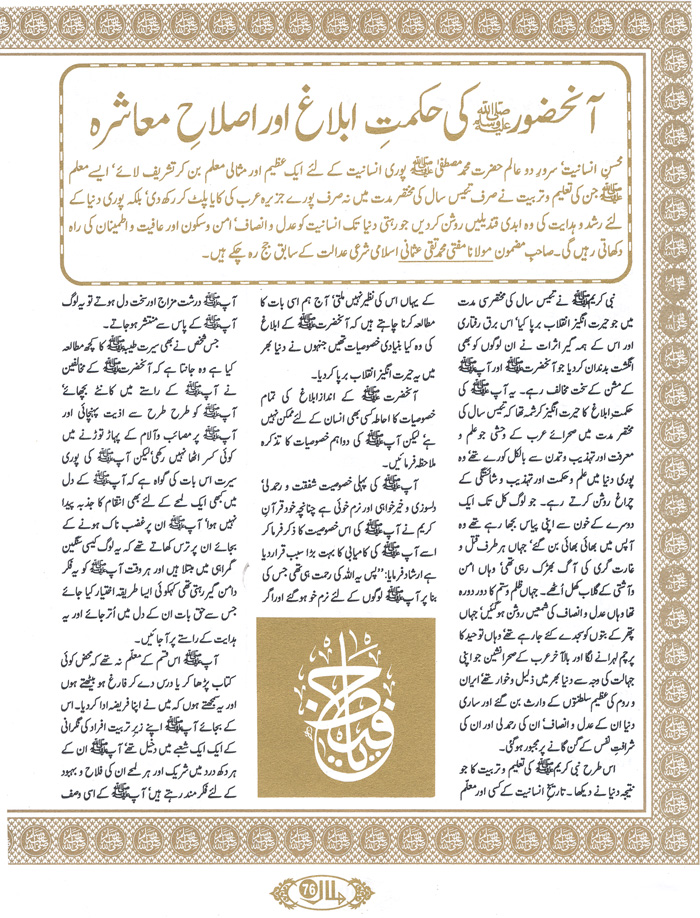 آنحضور ﷺ کی حکمتِ ابلاغ اور اصلاحِ معاشرہ
محسنِ انسانیت‘ سرورِ دو عالم حضرت محمد مصطفیٰ ﷺ پوری انسانیت کے لئے ایک عظیم اور مثالی معلم بن کر تشریف لائے‘ ایسے معلم
ﷺ جن کی تعلیم و تربیت نے صرف تئیس سال کی مختصر مدت میں نہ صرف پورے جزیرہ عرب کی کایا پلٹ کر رکھ دی‘ بلکہ پوری دنیا کے
لئے رشد و ہدایت کی وہ ابدی قندیلیں روشن کردیں جو رہتی دنیا تک انسانیت کو عدل و انصاف‘ امن و سکون اور عافیت و اطمینان کی راہ
دکھاتی رہیں گی۔ صاحبِ مضمون مولانا مفتی محمد تقی عثمانی اسلامی شرعی عدالت کے سابق جج رہ چکے ہیں۔
نبی کریم ﷺ نے تئیس سال کی مختصر سی مدت
میں جو حیرت انگیز انقلاب برپا کیا‘ اس برق رفتاری
اور اس کے ہمہ گیر اثرات نے ان لوگوں کو بھی
انگشت بدنداں کردیا جو آنحضرت ﷺ اور آپ ﷺ
کے مشن کے سخت مخالف رہے۔ یہ آپ ﷺ کی
حکمتِ ابلاغ کا حیرت انگیز کرشمہ تھا کہ تئیس سال کی
مختصر مدت میں صحرائے عرب کے وحشی جو علم و
معرفت اور تہذیب و تمدن سے بالکل کورے تھے‘ وہ
پوری دنیا میں علم و حکمت اور تہذیب و شائستگی کے
چراغ روشن کرتے رہے۔ جو لوگ کل تک ایک
دوسرے کے خون سے اپنی پیاس بجھا رہے تھے وہ
آپس میں بھائی بھائی بن گئے‘ جہاں ہر طرف قتل و
غارت گری کی آگ بھڑک رہی تھی‘ وہاں امن
و آشتی کے گلاب کھل اُٹھے۔ جہاں ظلم و ستم کا دور دورہ
تھا وہاں عدل و انصاف کی شمعیں روشن ہوگئیں‘ جہاں
پتھر کے بتوں کو سجدے کئے جارہے تھے‘ وہاں توحید کا
پرچم لہرانے لگا اور بالآخر عرب کے صحرا نشین جو اپنی
جہالت کی وجہ سے دنیا بھر میں ذلیل و خوار تھے‘ ایران
و روم کی عظیم سلطنتوں کے وارث بن گئے اور ساری
دنیا ان کے عدل و انصاف‘ ان کی رحمدلی اور ان کی
شرافتِ نفس کے گُن گانے پر مجبور ہوگئی۔
اس طرح نبی کریم ﷺ کی تعلیم و تربیت کا جو
نتیجہ دنیا نے دیکھا۔ تاریخ انسانیت کے کسی اور معلم
کے یہاں اس کی نظیر نہیں ملتی‘ آج ہم اسی بات کا
مطالعہ کرنا چاہتے ہیں کہ آنحضرت ﷺ کے ابلاغ
کی وہ کیا بنیادی خصوصیات تھیں جنہوں نے دنیا بھر
میں یہ حیرت انگیز انقلاب برپا کردیا۔
آنحضرت ﷺ کے اندازِ ابلاغ کی تمام
خصوصیات کا احاطہ کسی بھی انسان کے لئے ممکن نہیں
ہے‘ لیکن آپ ﷺ کی دو اہم خصوصیات کا تذکرہ
ملاحظہ فرمائیں۔
آپ ﷺ کی پہلی خصوصیت شفقت و رحمدلی‘
دلسوزی و خیر خواہی اور نرم خوئی ہے چنانچہ خود قرآنِ
کریم نے آپ ﷺ کی اس خصوصیت کا ذکر فرما کر
اسے آپ ﷺ کی کامیابی کا بہت بڑا سبب قرار دیا
ہے ارشاد فرمایا: ’’پس یہ اللہ کی رحمت ہی تھی جس کی
بنا پر آپ ﷺ لوگوں کے لئے نرم خو ہوگئے اور اگر
فیاض
آپ ﷺ درشت مزاج اور سخت دل ہوتے تو یہ لوگ
آپ ﷺ کے پاس سے منتشر ہوجاتے۔
جس شخص نے بھی سیرت طیبہ ﷺ کا کچھ مطالعہ
کیا ہے وہ جانتا ہے کہ آنحضرت ﷺ کے مخالفین
نے آپ ﷺ کے راستے میں کانٹے بچھائے‘
آپ ﷺ کو طرح طرح سے اذیت پہنچائی اور
آپ ﷺ پر مصائب و آلام کے پہاڑ توڑنے میں
کوئی کسر اٹھا نہیں رکھی‘ لیکن آپ ﷺ کی پوری
سیرت اس بات کی گواہ ہے کہ آپ ﷺ کے دل
میں کبھی ایک لمحے کے لئے بھی انتقام کا جذبہ پیدا
نہیں ہوا‘ آپ ﷺ ان پر غضب ناک ہونے کے
بجائے ان پر ترس کھاتے تھے کہ یہ لوگ کیسی سنگین
گمراہی میں مبتلا ہیں اور ہر وقت آپ ﷺ کو یہ فکر
دامن گیر رہتی تھی کہ کوئی ایسا طریقہ اختیار کیا جائے
جس سے حق بات ان کے دل میں اُتر جائے اور یہ
ہدایت کے راستے پر آجائیں۔
آپ ﷺ اس قسم کے معلم نہ تھے کہ محض کوئی
کتاب پڑھا کر یا درس دے کر فارغ ہو بیٹھتے ہوں
اور یہ سمجھتے ہوں کہ میں نے اپنا فریضہ ادا کردیا۔ اس
کے بجائے آپ ﷺ اپنے زیرِ تربیت افراد کی نگرانی
کے ایک ایک شعبے میں دخیل تھے‘ آپ ﷺ ان کے
ہر دکھ درد میں شریک اور ہر لمحے ان کی فلاح و بہبود
کے لئے فکر مند رہتے ہیں‘ آپ ﷺ کے اسی وصف
ہلال 76